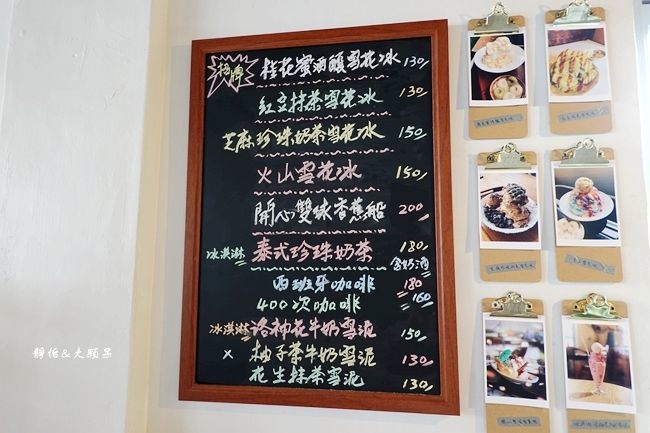 招牌 桂花蜜酒釀雪花冰 130/
紅豆抹茶雪花冰 130
芝麻珍珠奶茶雪花冰 150
火山雪花冰 150
開心雙球香蕉船 200
冰淇淋 泰式珍珠奶茶 180
含奶酒
西班牙咖啡 180
400次咖啡 160
冰淇淋 洛神花牛奶雪泥 150
× 柚子茶牛奶雪泥 130
花生抹茶雪泥 130
靜怡&大顆呆